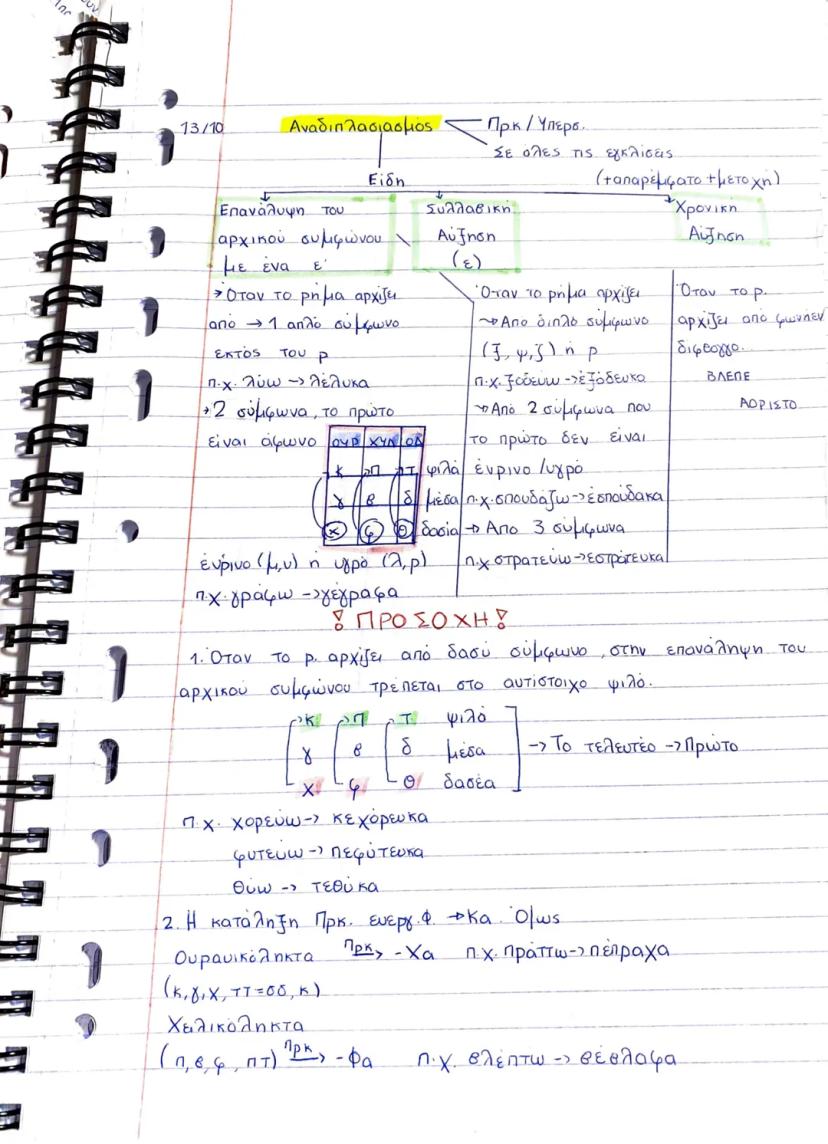 13/10 Αναδιπλασιασμός Πρκ / Υπερσ.
Σε όλες τις εγκλίσεις
(+απαρέμφατο + μετοχή)
Είδη
Επανάλυψη του
αρχικού συμφώνου
με ένα ε
→ Όταν το ρήμα αρχίζει
από → 1 απλό σύμφωνο
εκτός του ρ
π.χ. λύω → λέλυκα
→ 2 σύμφωνα, το πρώτο
είναι άφωνο
ΟΥΡ ΧΥΛ ΟΔ
κ π τ ψιλά
γ β δ μέσα
χ φ θ δασία
ένρινο (μ,ν) ή υγρό (λ,ρ)
π.χ. γράφω → γέγραφα
Συλλαβική
Αύξηση
(ε)
Όταν το ρήμα αρχίζει
→ Από διπλό σύμφωνο
(ξ, ψ, ζ) ή ρ
π.χ. ξοδεύω → έξόδευκα
→ Από 2 σύμφωνα που
το πρώτο δεν είναι
ένρινο / υγρό
π.χ. σπουδάζω → έσπούδακα
→ Από 3 σύμφωνα
π.χ στρατεύω → εστράτευκα
Χρονική
Αύξηση
Όταν το ρ.
αρχίζει από φωνήεν
διφθογγο.
ΒΛΕΠΕ
ΑΟΡΙΣΤΟ
! ΠΡΟΣΟΧΗ !
1. Όταν το ρ. αρχίζει από δασύ σύμφωνο, στην επανάληψη του
αρχικού συμφώνου τρέπεται στο αντίστοιχο ψιλό.
κ π τ ψιλό
γ β δ μέσα → Το τελευτέο → Πρώτο
χ φ θ δασέα
π.χ. χορεύω → κεχόρευκα
φυτεύω → πεφύτευκα
θύω → τεθύκα
2. Η κατάληξη Πρκ. ενεργ. Φ. → κα. Όμως
Ουρανικόληκτα Πρκ → -χα π.χ. πράττω → πέπραχα
(κ, γ, χ, ττ = σσ, κ)
Χειλικόληκτα
(π, β, φ, πτ) Πρκ → -φα π.χ. βλέπτω → βέβλαφα